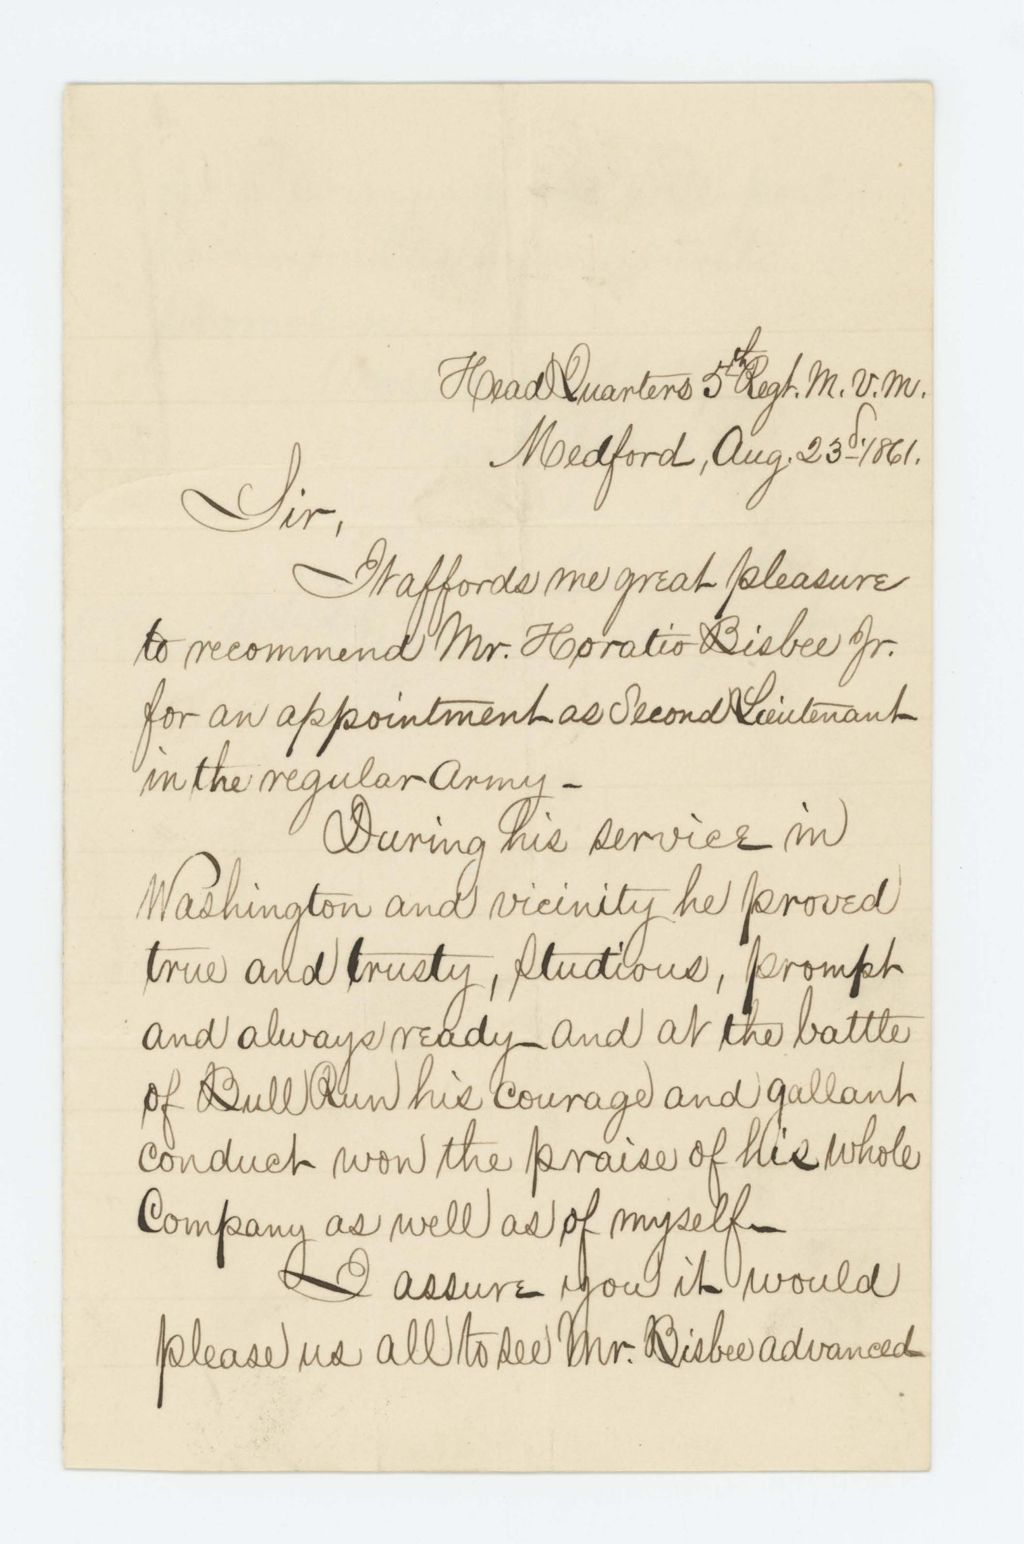 Head Quarters 5th Regt. M. V. M.
Medford, Aug. 23d. 1861.
Sir,
It affords me great pleasure
to recommend Mr. Horatio Bisbee Jr.
for an appointment as Second Lieutenant
in the regular Army –
During his service in
Washington and vicinity he proved
true and trusty, studious, prompt
and always ready – and at the battle
of Bull Run his courage and gallant
conduct won the praise of his whole
Company as well as of myself –
I assure you it would
please us all to see Mr. Bisbee advanced